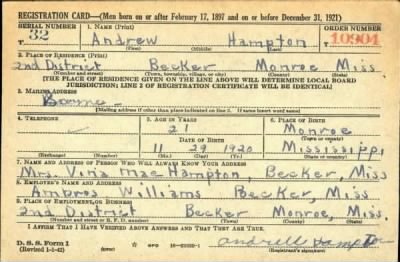 REGISTRATION CARD—(Men born on or after February 17, 1897 and on or before December 31, 1921)
SERIAL NUMBER 1. NAME (Print) ORDER NUMBER
32 Andrew Hampton 10904
(First) (Middle) (Last)
2. PLACE OF RESIDENCE (Print)
2nd District Becker Monroe Miss
(Number and street) (Town, township, village, or city) (County) (State)
[THE PLACE OF RESIDENCE GIVEN ON THE LINE ABOVE WILL DETERMINE LOCAL BOARD
JURISDICTION; LINE 2 OF REGISTRATION CERTIFICATE WILL BE IDENTICAL]
3. MAILING ADDRESS
Same
[Mailing address if other than place indicated on line 2. If same insert word same]
4. TELEPHONE 5. AGE IN YEARS 6. PLACE OF BIRTH
21 Monroe
DATE OF BIRTH (Town or county)
11 29 1920 Mississippi
(Exchange) (Number) (Mo.) (Day) (Yr.) (State or country)
7. NAME AND ADDRESS OF PERSON WHO WILL ALWAYS KNOW YOUR ADDRESS
Mrs. Viria Mae Hampton, Becker, Miss
8. EMPLOYER'S NAME AND ADDRESS
Williams Becker, Miss
9. PLACE OF EMPLOYMENT OR BUSINESS
2nd District Becker Monroe, Miss.
(Number and street or R. F. D. number) (Town) (County) (State)
I AFFIRM THAT I HAVE VERIFIED ABOVE ANSWERS AND THAT THEY ARE TRUE.
D. S. S. Form 1
(Revised 1-1-42) (over)